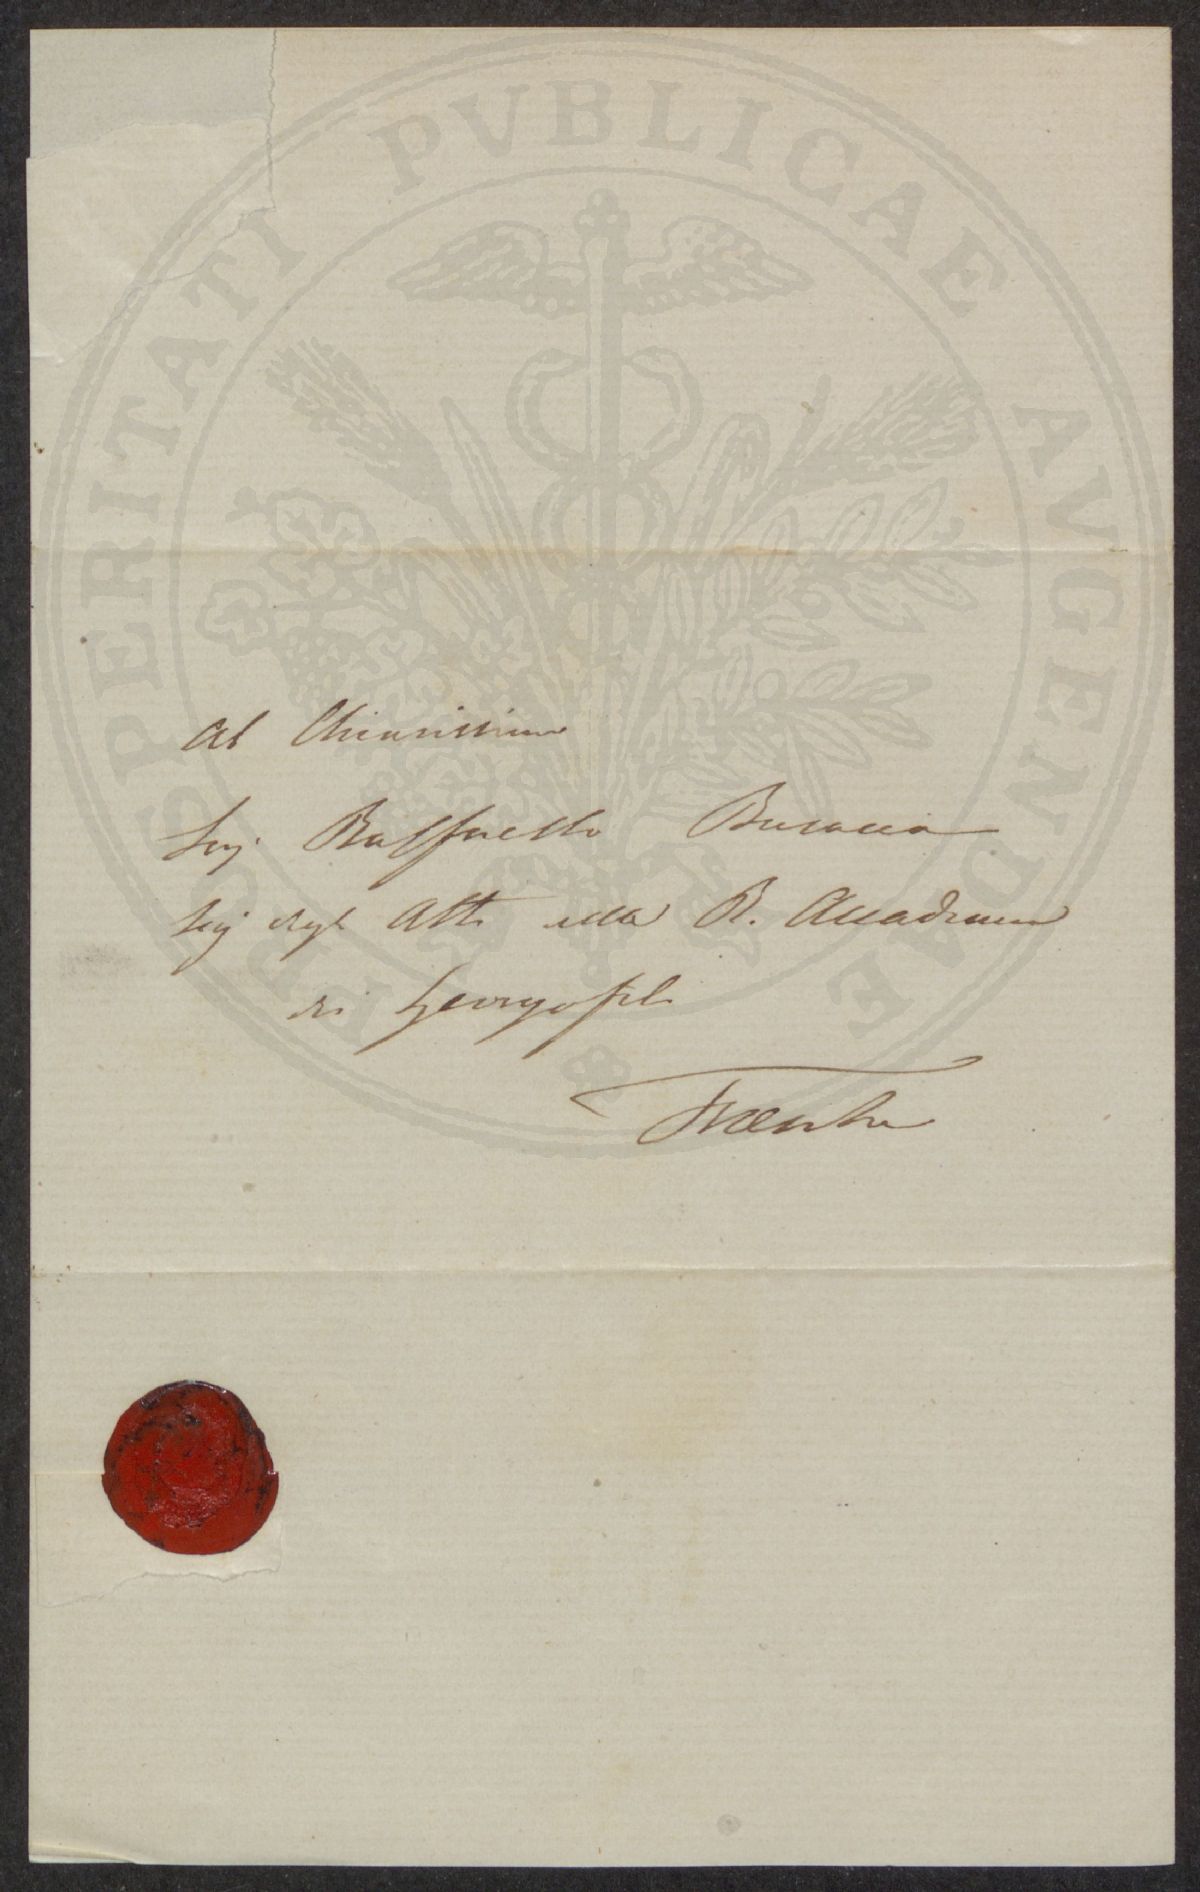 PROSPERITATI PVBLICAE AVGENDAE
Al Chiarissimo
Sig. Raffaello Busacca
Seg degli Atti della R. Accademia
dei Georgofili
Firenze